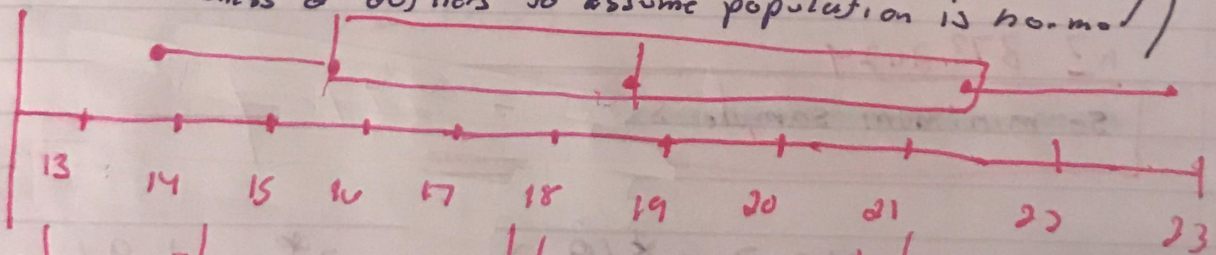 so assume population is normal
13 14 15 16 17 18 19 20 21 22 23